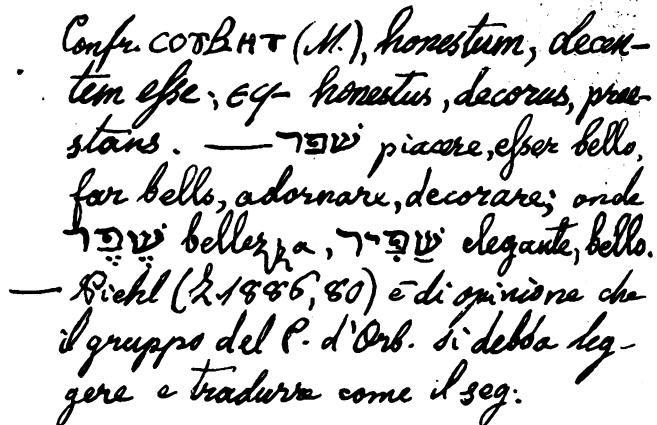 Confr. ⲥⲟⲧⲃⲏⲧ (M.), honestum, decen-
tem esse; ⲉϥ- honestus, decorus, prae-
stans. — שפר piacere, esser bello,
far bello, adornare, decorare; onde
שֶׁפֶר bellezza, שַׁפִּיר elegante, bello.
— Piehl (Z 1886, 80) è di opinione che
il gruppo del P. d'Orb. si debba leg-
gere e tradurre come il seg: